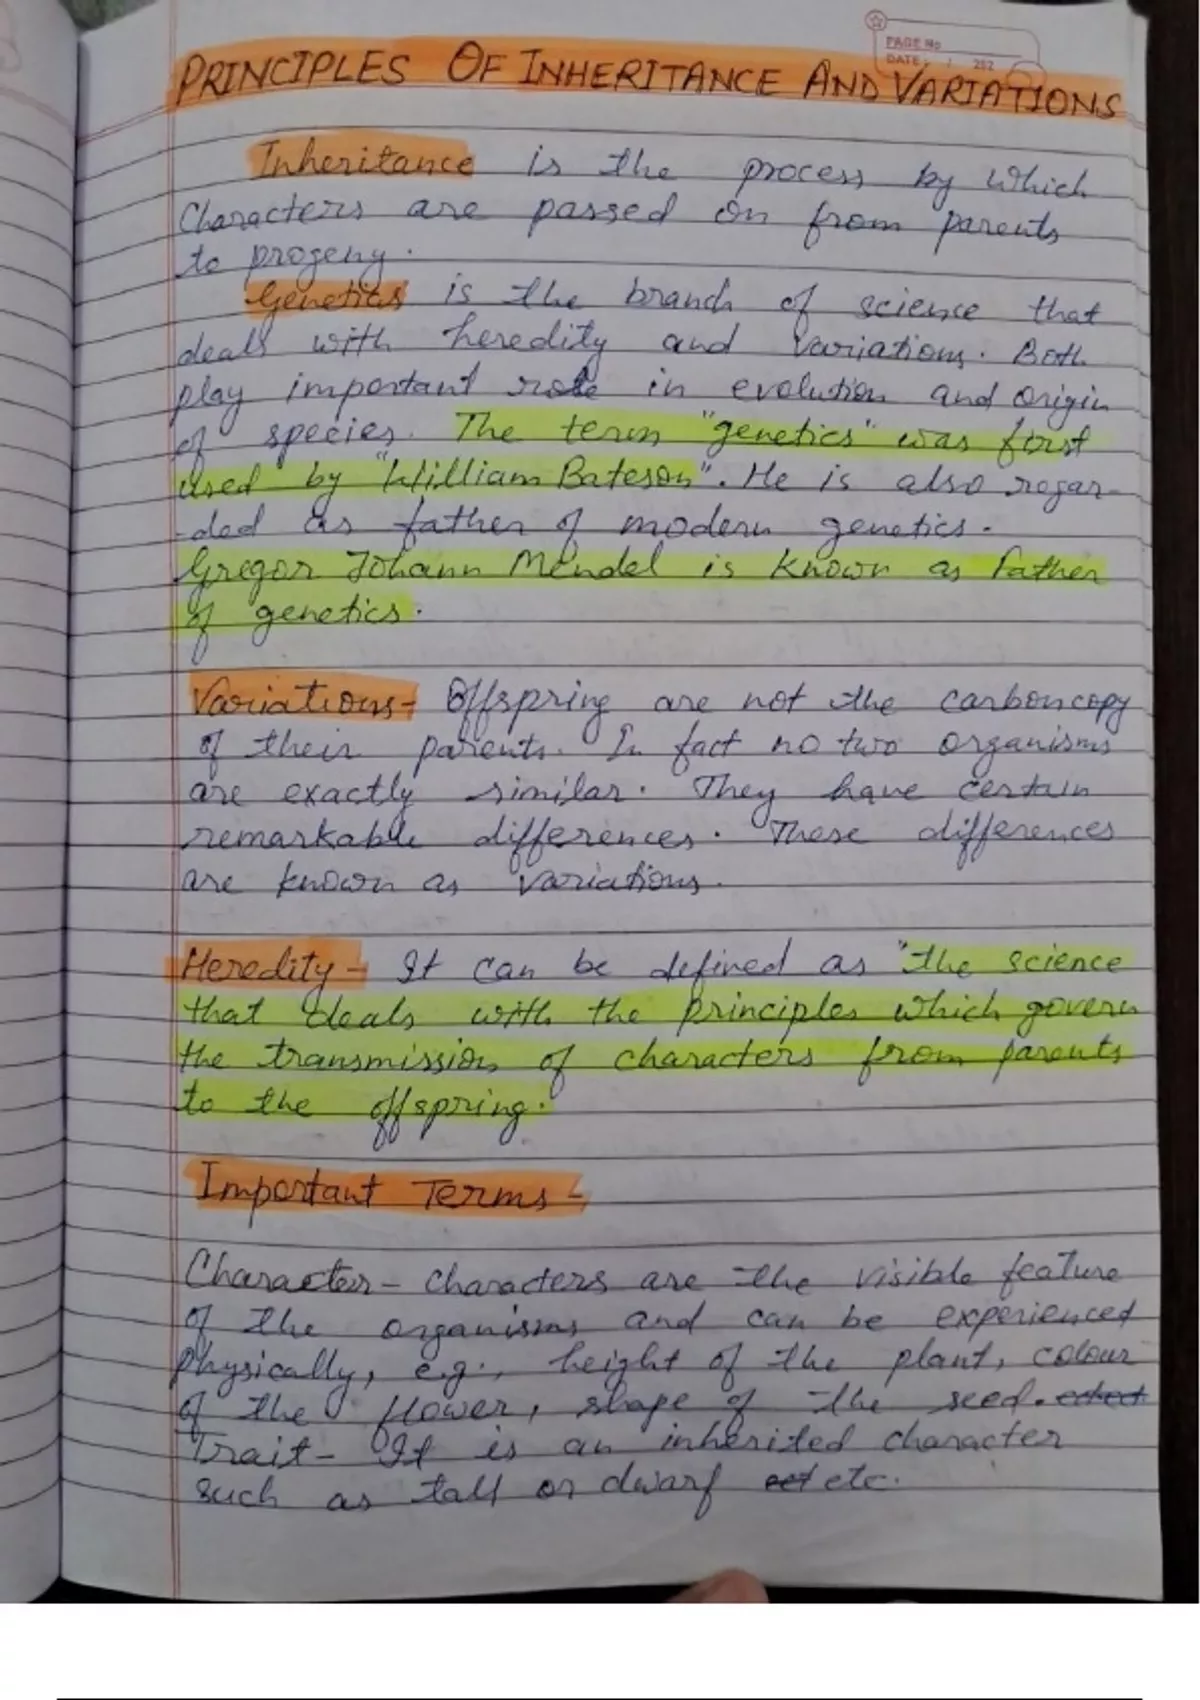 PAGE No
DATE / / 202
PRINCIPLES OF INHERITANCE AND VARIATIONS
Inheritance is the process by which
Characters are passed on from parents
to progeny.
Genetics is the branch of science that
deals with heredity and variations. Both
play important role in evolution and origin
of species. The term "genetics" was first
used by "William Bateson". He is also regar-
-ded as father of modern genetics.
Gregor Johann Mendel is known as Father
of genetics.
Variations- Offspring are not the carboncopy
of their parents. In fact no two organisms
are exactly similar. They have certain
remarkable differences. These differences
are known as variations.
Heredity- It can be defined as "the science
that deals with the principles which govern
the transmission of characters from parents
to the offspring.
Important Terms-
Character- Characters are the visible feature
of the organisms and can be experienced
physically, e.g., height of the plant, colour
of the flower, shape of the seed.
Trait- It is an inherited character
such as tall or dwarf etc.